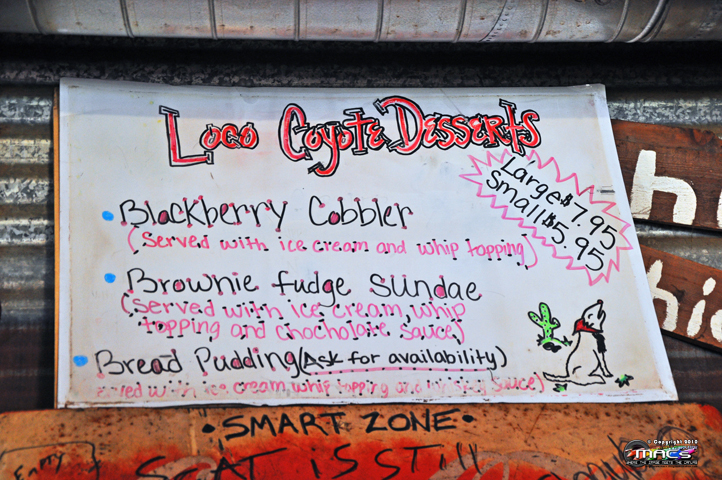 Loco Coyote Desserts
Large $7.95
Small $5.95
Blackberry Cobbler
(Served with ice cream and whip topping)
Brownie fudge Sundae
(served with ice cream, whip
topping and chocholate sauce)
Bread Pudding (Ask for availability)
served with ice cream, whip topping and sauce)
•SMART ZONE•
SCAT iS STill
© Copyright 2010
MACS